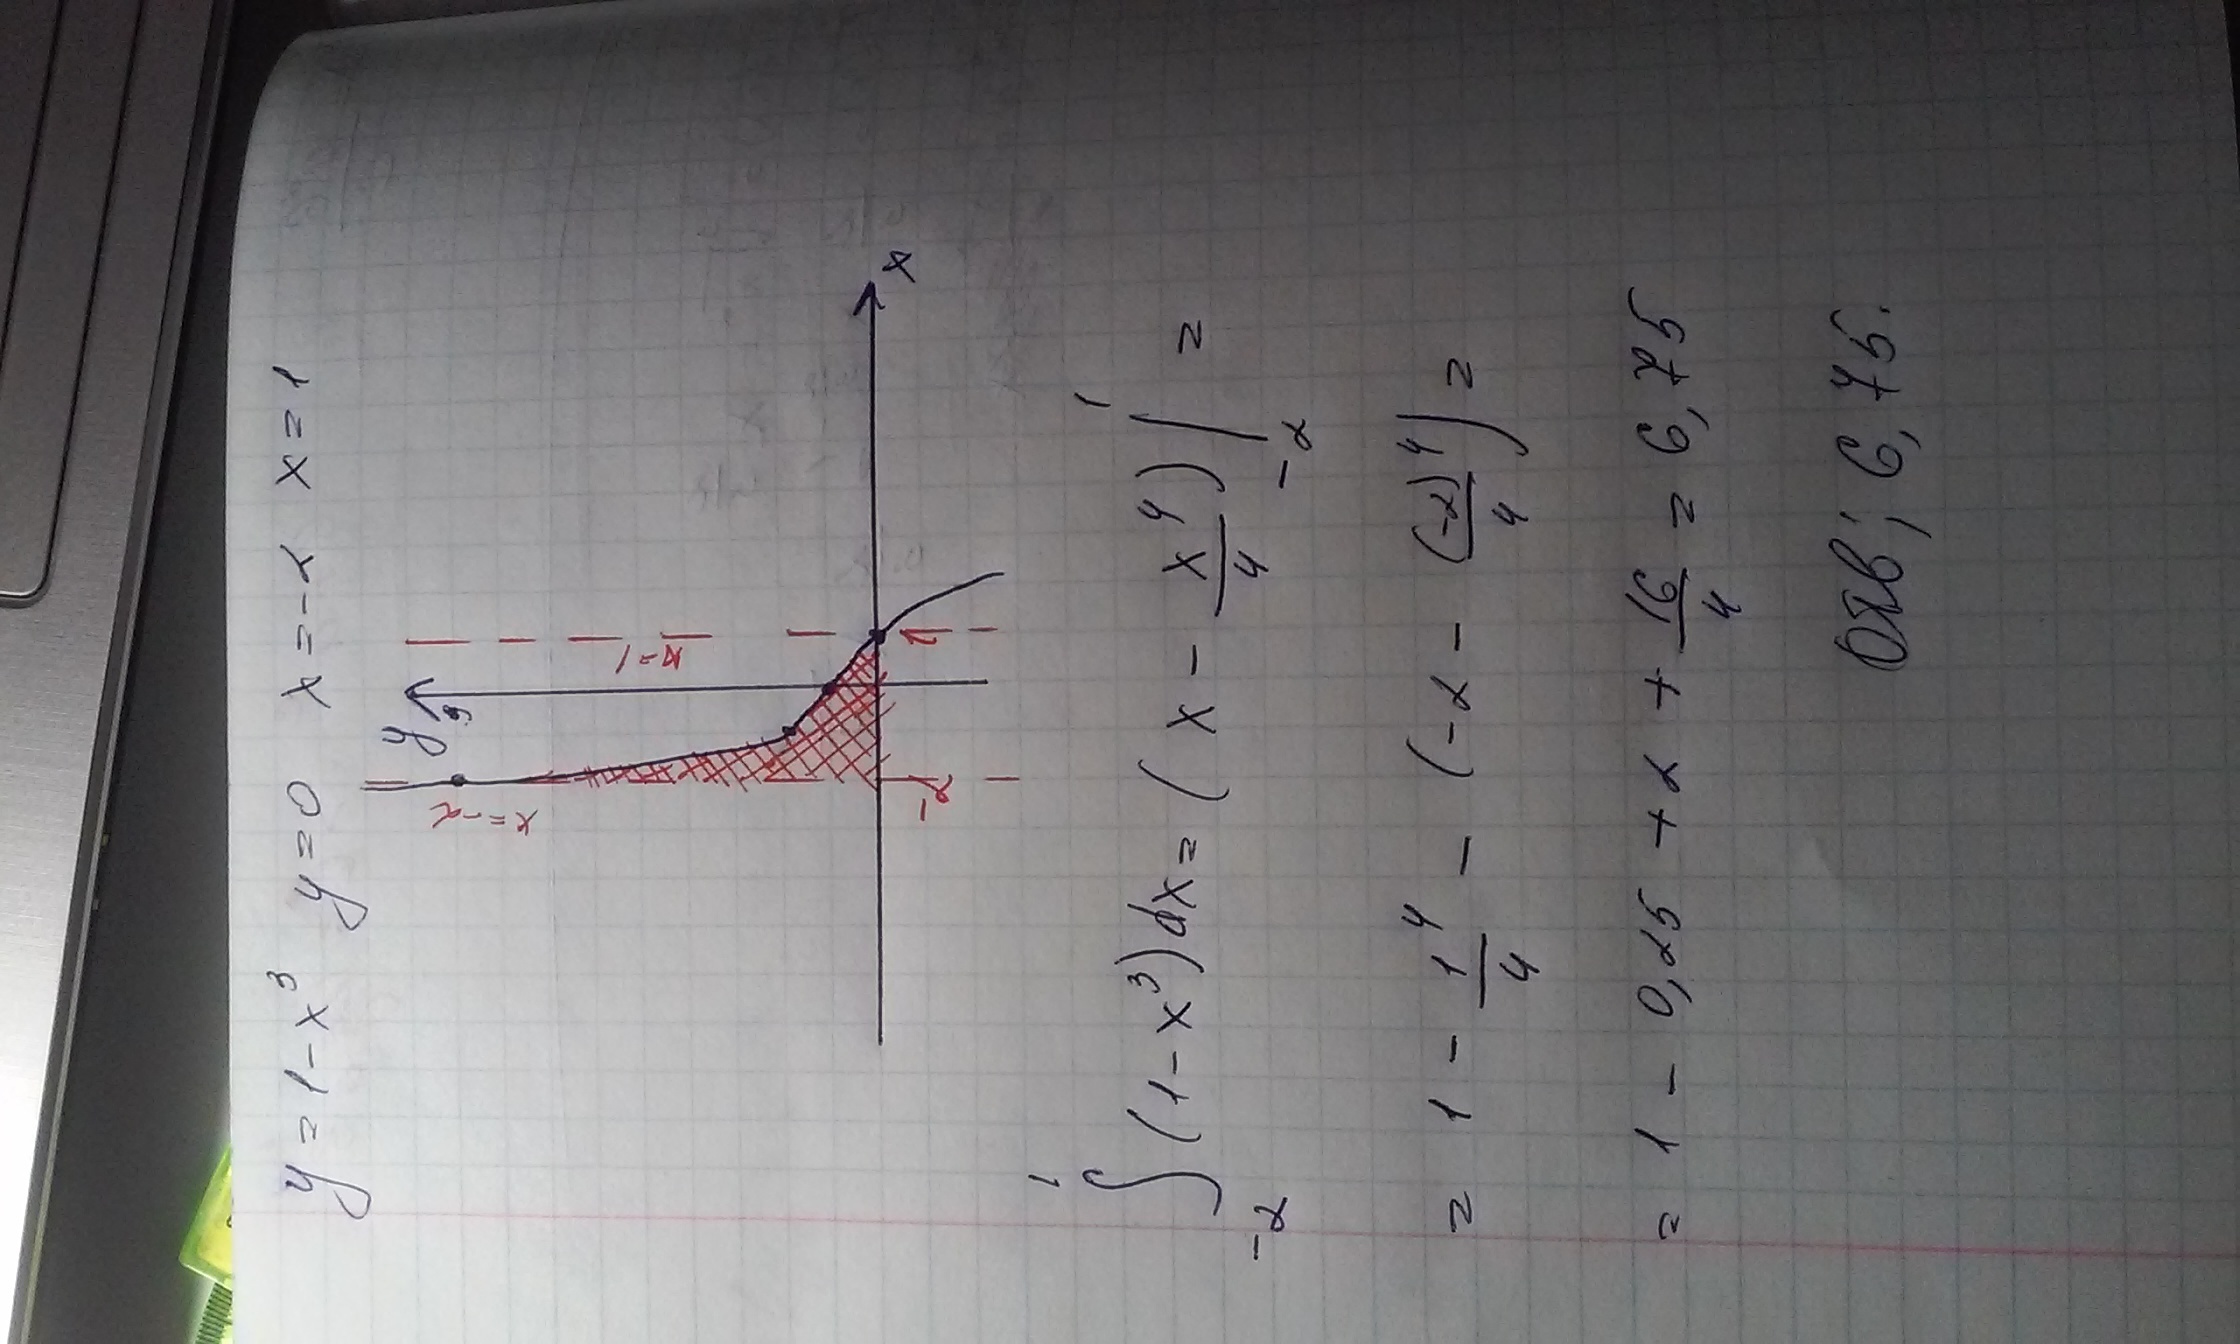 y = 1 - x³ y = 0 x = -2 x = 1
y
9
x = -2
x = 1
x
-2
1
∫₋₂¹ (1 - x³)dx = (x - x⁴/4)|₋₂¹ =
= 1 - 1⁴/4 - (-2 - (-2)⁴/4) =
= 1 - 0,25 + 2 + 16/4 = 6,75
Отв; 6,75.